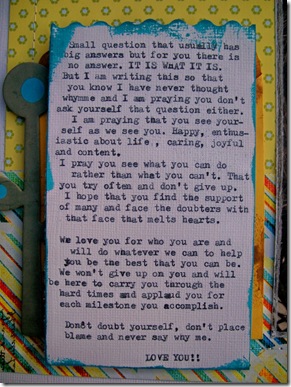 Small question that usually has
big answers but for you there is
no answer. IT IS WHAT IT IS.
But I am writing this so that
you know I have never thought
whymme and I am praying you don't
ask yourself that question either.
I am praying that you see your-
self as we see you. Happy, enthus-
iastic about life , caring, joyful
and content.
I pray you see what you can do
rather than what you can't. That
you try often and don't give up.
I hope that you find the support
of many and face the doubters with
that face that melts hearts.
We love you for who you are and
will do whatever we can to help
you be the best that you can be.
We won't give up on you and will
be here to carry you through the
hard times and applaud you for
each milestone you accomplish.
Don't doubt yourself, don't place
blame and never say why me.
LOVE YOU!!